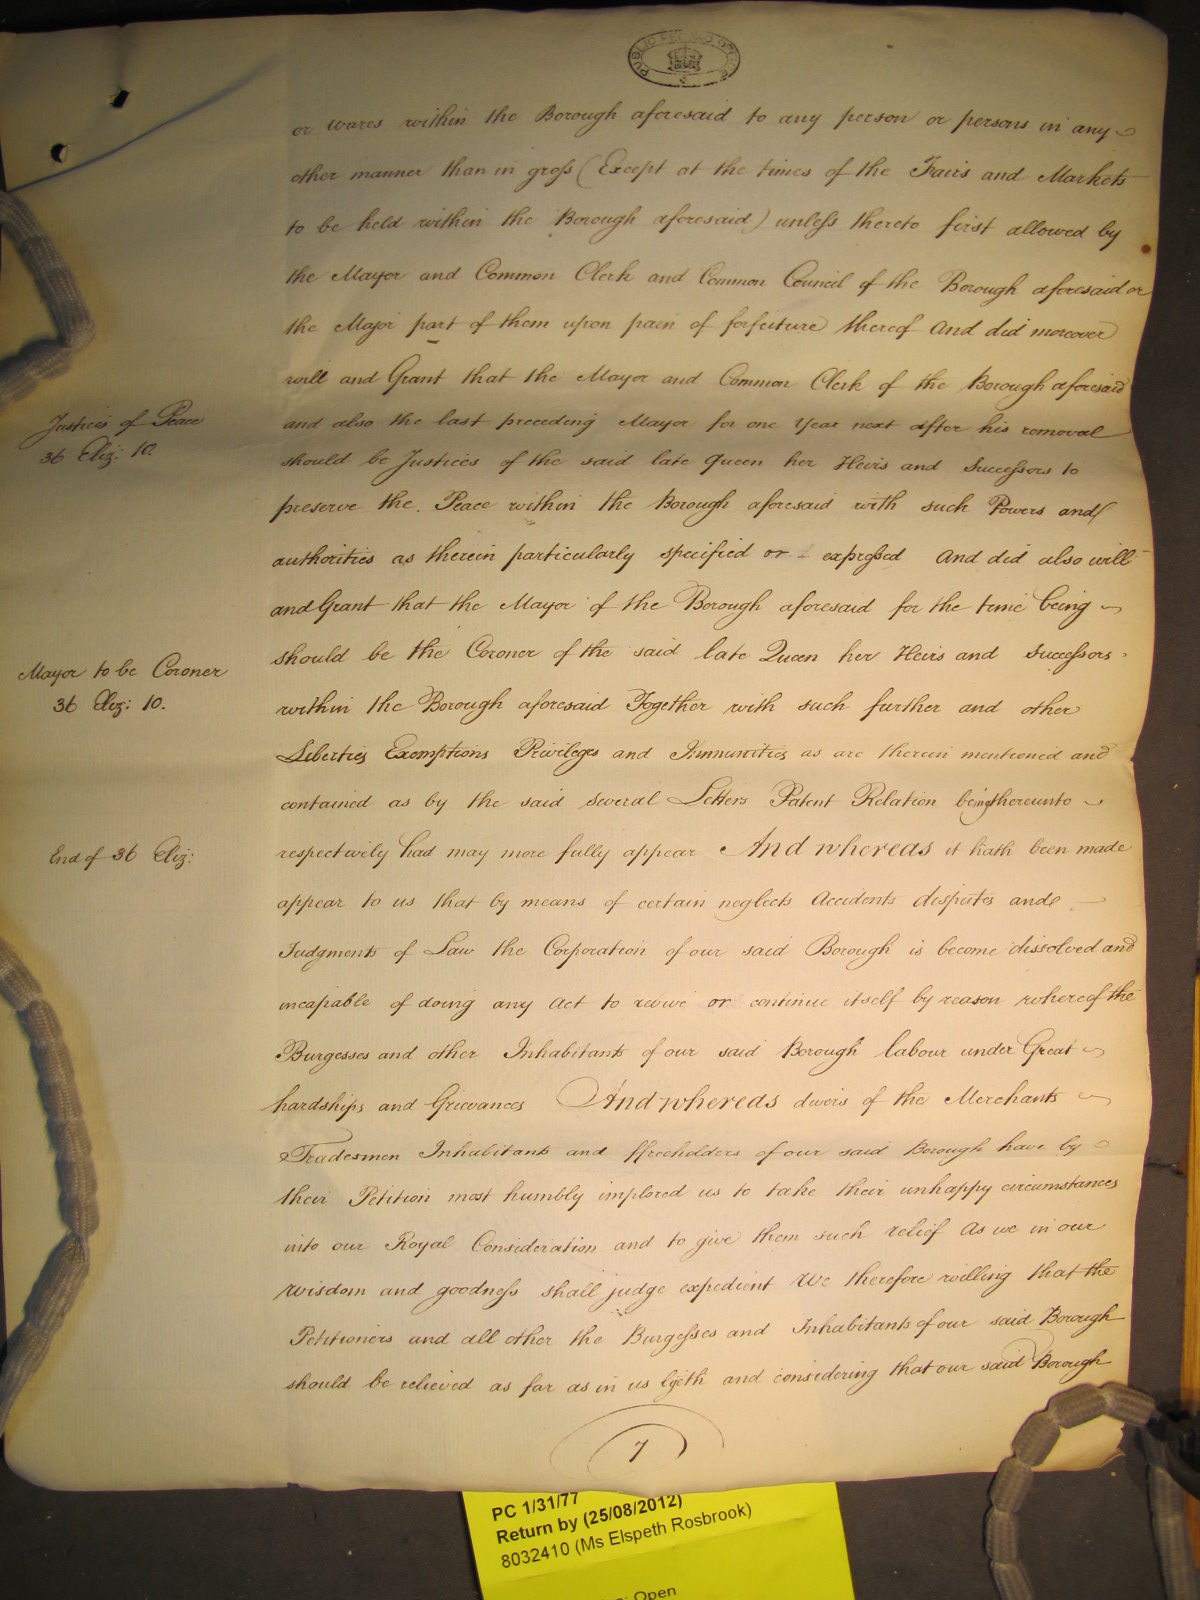 PUBLIC RECORD OFFICE
or wares within the Borough aforesaid to any person or persons in any
other manner than in gross (Except at the times of the Fairs and Markets
to be held within the Borough aforesaid) unless thereto first allowed by
the Mayor and Common Clerk and Common Council of the Borough aforesaid or
the Major part of them upon pain of forfeiture thereof And did moreover
will and Grant that the Mayor and Common Clerk of the Borough aforesaid
Justices of Peace
36 Eliz: 10.
and also the last preceding Mayor for one Year next after his removal
should be Justices of the said late Queen her Heirs and Successors to
preserve the Peace within the Borough aforesaid with such Powers and
authorities as therein particularly specified or expressed And did also will
and Grant that the Mayor of the Borough aforesaid for the time being
Mayor to be Coroner
36 Eliz: 10.
should be the Coroner of the said late Queen her Heirs and Successors
within the Borough aforesaid Together with such further and other
Liberties Exemptions Privileges and Immunities as are therein mentioned and
contained as by the said several Letters Patent Relation being thereunto
End of 36 Eliz:
respectively had may more fully appear And whereas it hath been made
appear to us that by means of certain neglects Accidents disputes and
Judgments of Law the Corporation of our said Borough is become dissolved and
incapable of doing any Act to revive or continue itself by reason whereof the
Burgesses and other Inhabitants of our said Borough labour under Great
hardships and Grievances And whereas divers of the Merchants
Tradesmen Inhabitants and ffreeholders of our said Borough have by
their Petition most humbly implored us to take their unhappy circumstances
into our Royal Consideration and to give them such relief As we in our
wisdom and goodness shall judge expedient We therefore willing that the
Petitioners and all other the Burgesses and Inhabitants of our said Borough
should be relieved as far as in us lyeth and considering that our said Borough
7
PC 1/31/77
Return by (25/08/2012)
8032410 (Ms Elspeth Rosbrook)
Open